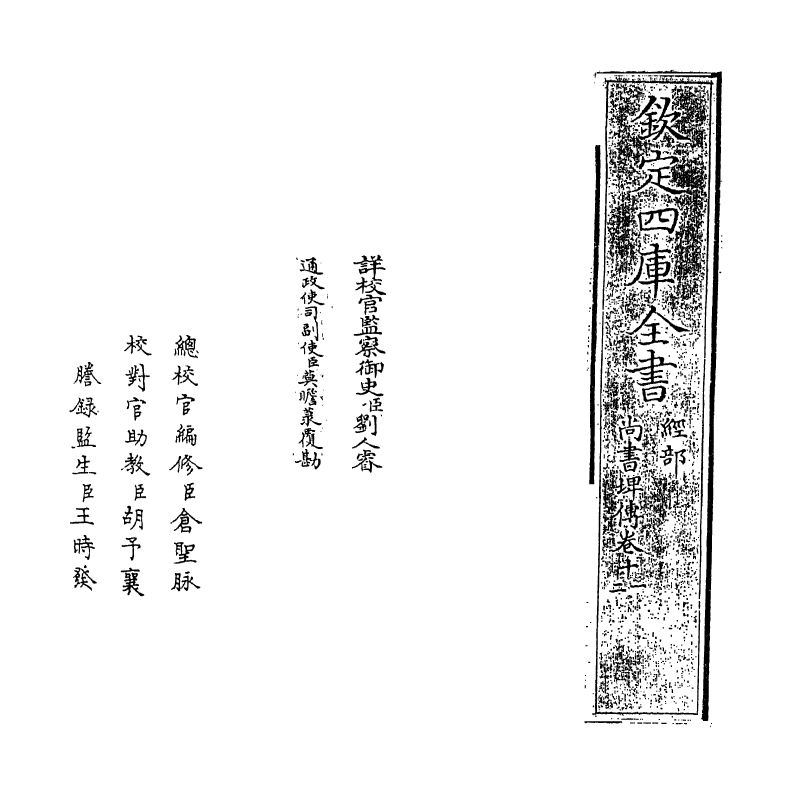 欽定四庫全書
經部
尚書埤傳卷十一
十二
詳校官監察御史臣劉人睿
通政使司副使臣莫瞻菉覆勘
總校官編修臣倉聖脉
校對官助教臣胡予襄
謄錄監生臣王時發